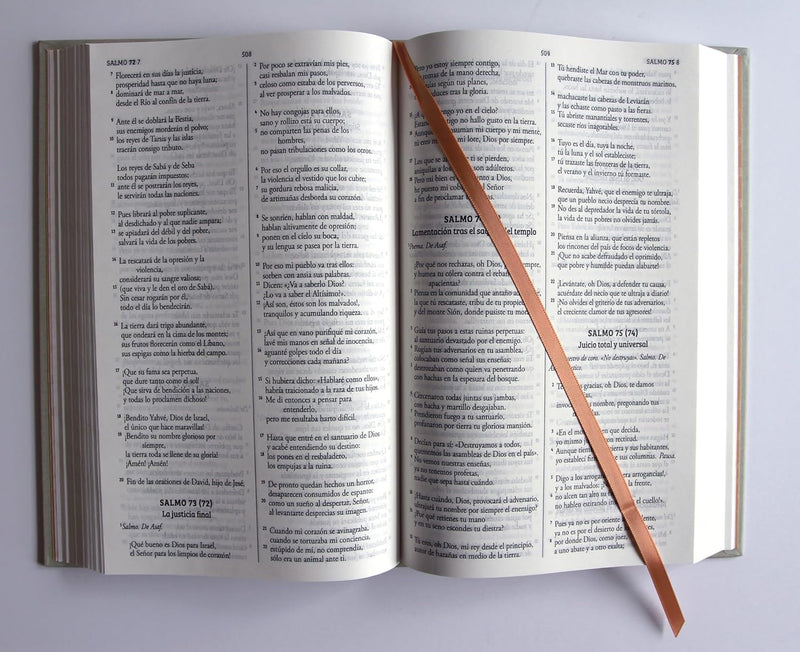 SALMO 72 7
508
7 Florecerá en sus días la justicia,
prosperidad hasta que no haya luna;
8 dominará de mar a mar,
desde el Río al confín de la tierra.
9 Ante él se doblará la Bestia,
sus enemigos morderán el polvo;
10 los reyes de Tarsis y las islas
traerán consigo tributo.
Los reyes de Sabá y de Seba
todos pagarán impuestos;
11 ante él se postrarán los reyes,
le servirán todas las naciones.
12 Pues librará al pobre suplicante,
al desdichado y al que nadie ampara;
13 se apiadará del débil y del pobre,
salvará la vida de los pobres.
14 La rescatará de la opresión y la
violencia,
considerará su sangre valiosa;
15 (que viva y le den el oro de Sabá).
Sin cesar rogarán por él,
todo el día lo bendecirán.
16 La tierra dará trigo abundante,
que ondeará en la cima de los montes;
sus frutos florecerán como el Líbano,
sus espigas como la hierba del campo.
17 ¡Que su fama sea perpetua,
que dure tanto como el sol!
¡Que sirva de bendición a las naciones,
y todas lo proclamen dichoso!
18 ¡Bendito Yahvé, Dios de Israel,
el único que hace maravillas!
19 ¡Bendito su nombre glorioso por
siempre,
la tierra toda se llene de su gloria!
¡Amén! ¡Amén!
20 Fin de las oraciones de David, hijo de Jesé.
SALMO 73 (72)
La justicia final
1 Salmo. De Asaf.
¡Qué bueno es Dios para Israel,
el Señor para los limpios de corazón!
2 Por poco se extravían mis pies,
casi resbalan mis pasos,
3 celoso como estaba de los perversos,
al ver prosperar a los malvados.
4 No hay congojas para ellos,
sano y rollizo está su cuerpo;
5 no comparten las penas de los
hombres,
no pasan tribulaciones como los otros.
6 Por eso el orgullo es su collar,
la violencia el vestido que los cubre;
7 su gordura rebosa malicia,
de artimañas desborda su corazón.
8 Se sonríen, hablan con maldad,
hablan altivamente de opresión;
9 ponen en el cielo su boca,
y su lengua se pasea por la tierra.
10 Por eso mi pueblo va tras ellos:
sorben con ansia sus palabras.
11 Dicen: «¿Va a saberlo Dios?
¿Lo va a saber el Altísimo?».
12 ¡Así son, éstos son los malvados!,
tranquilos y acumulando riqueza.
13 ¡Así que en vano purifiqué mi corazón,
lavé mis manos en señal de inocencia,
14 aguanté golpes todo el día
y correcciones cada mañana?
15 Si hubiera dicho: «Hablaré como ellos»,
habría traicionado a la raza de tus hijos.
16 Me di entonces a pensar para
entenderlo,
pero me resultaba harto difícil.
17 Hasta que entré en el santuario de Dios
y acabé entendiendo su destino:
18 los pones en el resbaladero,
los empujas a la ruina.
19 De pronto quedan hechos un horror,
desaparecen consumidos de espanto;
20 como un sueño al despertar, Señor,
al levantarte desprecias su imagen.
21 Cuando mi corazón se avinagraba,
cuando se torturaba mi conciencia,
22 estúpido de mí, no comprendía,
sólo era un animal ante ti.
509
SALMO 75 8
Pero yo estoy siempre contigo,
de la mano derecha,
según tus planes,
tras la gloria.
yo en el cielo?
hallo gusto en la tierra.
mi cuerpo y mi mente,
mi lote, Dios por siempre.
Los que se alejan de ti se pierden,
aniquilas a los que son adúlteros.
Pero mi bien es a Dios,
he puesto mi en el Señor
a fin de proclamar
SALMO 7
Lamentación tras el saqueo del templo
Poema. De Asaf.
¿Por qué nos rechazas, oh Dios, siempre,
y humea tu cólera contra el rebaño
apacientas?
Piensa en la comunidad que antaño
la que tú rescataste, tribu de tu propiedad,
y del monte Sión, donde pusiste tu morada.
Guía tus pasos a estas ruinas perpetuas:
el santuario devastado por el enemigo.
Rugían tus adversarios en tu asamblea,
colocaban como señal sus enseñas;
destrozaban como quien va penetrando
con hachas en la espesura del bosque.
Cercenaron todas juntas sus jambas,
con hacha y martillo desgajaban.
Prendieron fuego a tu santuario,
profanaron por tierra tu gloriosa mansión.
Decían para sí: «Destruyamos a todos,
quememos las asambleas de Dios en el país».
No vemos nuestras enseñas,
ya no tenemos profetas,
nadie que sepa hasta cuándo.
¿Hasta cuándo, Dios, provocará el adversario,
ultrajará tu nombre por siempre el enemigo?
¿Por qué retienes tu mano
y en tu seno escondes tu diestra?
Tú eres, oh Dios, mi rey desde el principio,
autor de hazañas en medio de la tierra.
13 Tú hendiste el Mar con tu poder,
quebraste las cabezas de monstruos marinos,
14 machacaste las cabezas de Leviatán
y las echaste como pasto a las fieras.
15 Tú abriste manantiales y torrentes,
secaste ríos inagotables.
16 Tuyo es el día, tuya la noche,
tú la luna y el sol estableciste;
17 tú trazaste las fronteras de la tierra,
el verano y el invierno tú formaste.
18 Recuerda, Yahvé, que el enemigo te ultraja,
que un pueblo necio desprecia tu nombre.
19 No des al depredador la vida de tu tórtola,
la vida de tus pobres no olvides jamás.
20 Piensa en la alianza, que están repletos
los rincones del país de focos de violencia.
21 ¡Que no acabe defraudado el oprimido,
que pobre y humilde puedan alabarte!
22 ¡Levántate, oh Dios, a defender tu causa,
acuérdate del necio que te ultraja a diario!
23 No olvides el griterío de tus adversarios,
el creciente clamor de tus agresores!
SALMO 75 (74)
Juicio total y universal
maestro de coro. «No destruyas». Salmo. De
Asaf. Cántico.
Te damos gracias, oh Dios, te damos
gracias,
invocando tu nombre, pregonando tus
«En el momento en que decida,
yo mismo juzgaré con rectitud.
Aunque tiemble la tierra y sus habitantes,
yo establecí firmes sus columnas. Pausa.
Digo a los arrogantes: ¡fuera arrogancias!,
no alcen tan alto su
no hablen estirando el cuello!».
Pues ya no es por oriente
por donde Dios, como juez,
a uno abate y a otro exalta;